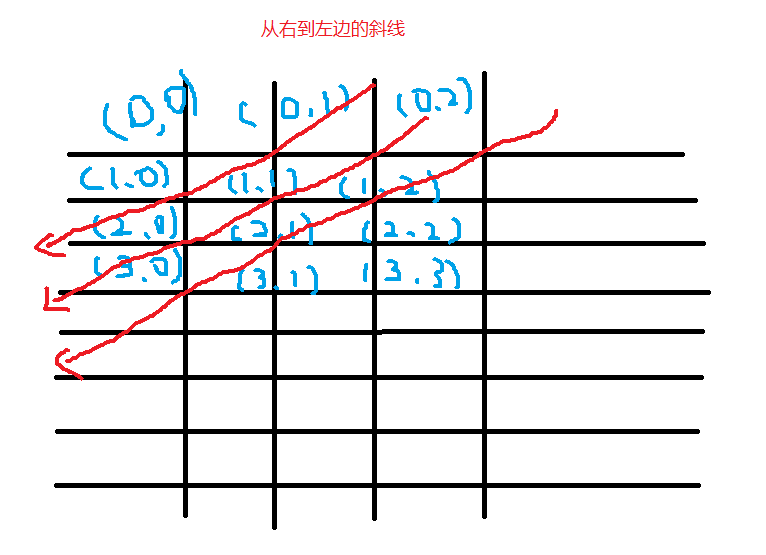 从右到左边的斜线
(0,0) (0,1) (0.2)
(1.0) (1.1) (1.2)
(2.0) (2.1) (2.2)
(3.0) (3.1) (3.3)